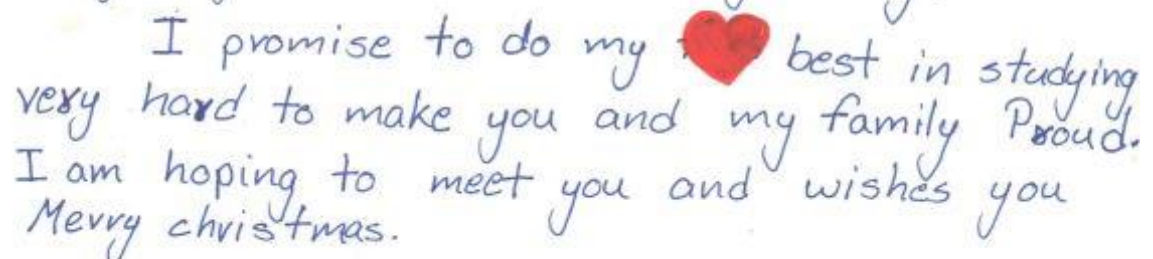 I promise to do my best in studying
very hard to make you and my family Proud.
I am hoping to meet you and wishes you
Merry christmas.